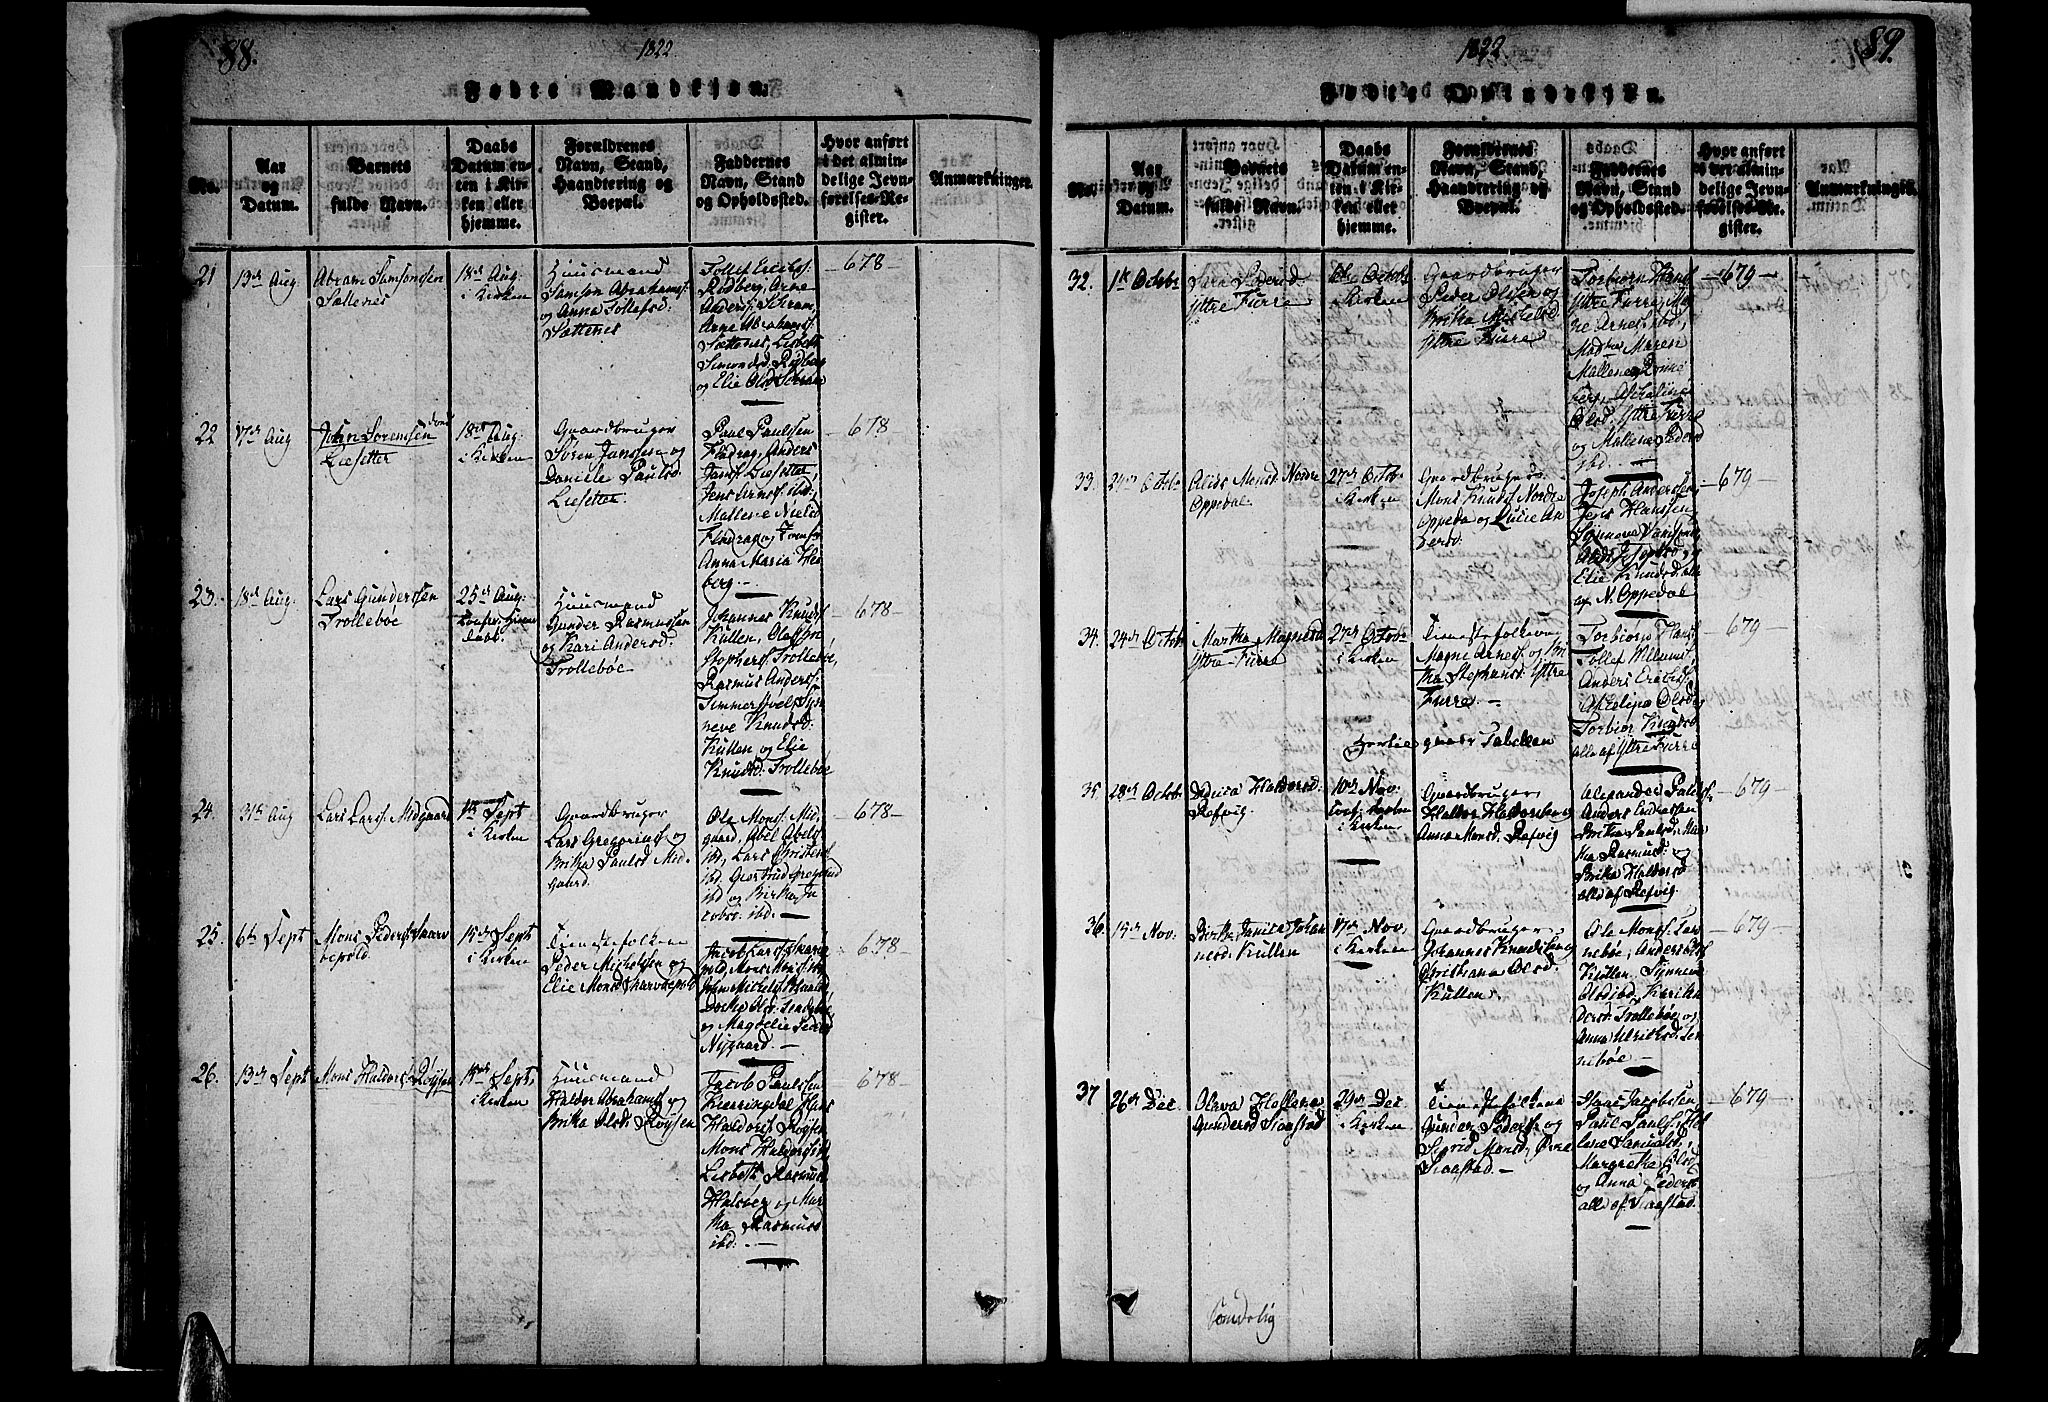 88.
1822
Fødte Mandkjøn.
No.
Aar
og
Datum.
Barnets
fulde Navn.
Daabs
Datum en-
ten i Kir-
ken eller
hjemme.
Forældrenes
Navn, Stand,
Haandtering og
Boepæl.
Faddernes
Navn, Stand
og Opholdssted.
Hvor anført
i det almin-
delige Jevn-
førelses-Re-
gister.
Anmærkninger.
21
13de Aug
Abram Samsonsen
Sættenes
18de Aug:
i Kirken
Huusmand
Samson Abrahams:
og Anna Tollefsd:
Sættenes
Tollef Erichs:
Rødberg, Arne
Anders: Schram,
Anne Abrahams:
Sættenes, Lisbeth
Simonsd. Rødberg
og Elie Olsd Schram
678
22
17de Aug
John Sørensen
Liesetter
18de Aug:
i Kirken
Gaardbruger
Søren Jansen og
Daniele Paulsd.
Liesetter
Paul Paulsen
Flødrag, Anders
Jans: Liesetter,
Jens Arnes: ibd,
Mallene Nielsd
Flødrag og Jomfr
Anna Maria
berg.
678
23.
18de Aug.
Lars Gundersen
Trolleboe
25de Aug:
Confir: Hiemme
daab.
Huusmand
Gunder Rasmussen
og Kari Andersd:
Trolleboe
Johannes Knuds:
Kullen, Ola Chri
stophers: Trolleboe,
Rasmus Anders:
Timmersvel, Syn
neve Knudsd:
Kullen og Elie
Knudsd: Trolleboe
678
24.
31te Aug
Lars Lars: Midgaard
1te Sept
i Kirken
Gaardbruger
Lars Gregorius: og
Britha Paulsd Mid-
gaard.
Ole Mons: Mid
gaard, Abel Abels:
ibd, Lars Christens:
ibd. Giertrud Gregoriusd
ibd og Britha Ja
cobsd. ibd.
678
25.
6te Sept
Mons Peders: Skarv
bepold.
15de Sept
i Kirken
Tienestefolkene
Peder Michelsen og
Elie Monsd Skarvbepold
Jacob Lars: Skarvbe
pold, Mons Mons: ibd
John Michels:
Dorthe Ols:
og Magdelie Peders
Nygaard.
678
26.
13de Sept
Mons Haldors: Røysen
15de Sept,
i Kirken
Huusmand
Haldor Abrahams: og
Britha Olsd: Røysen
Jacob Paulsen
Kierringdal, Hans
Haldors: Røysen
Mons Haldors: ibd
Lisbeth Rasmusd
Halsøer og Mar
tha Rasmusd
ibd.
678
89.
1822
Fødte Qvindekjøn.
No.
Aar
og
Datum.
Barnets
fulde Navn.
Daabs
Datum en-
ten i Kir-
ken eller
hjemme.
Forældrenes
Navn, Stand,
Haandtering og
Boepæl.
Faddernes
Navn, Stand
og Opholdssted.
Hvor anført
i det almin-
delige Jevn-
førelses-Re-
gister.
Anmærkninger.
32.
1te Octobr
Sara Pedersd
Ytre Furre
6te Octobr
i Kirken
Gaardbruger
Peder Olsen og
Britha Michelsd.
Ytre Furre
Torbiorn Hans:
Ytre Furre, Mag
ne Arnes: ibd,
Madme Maren
Mallene
berg, Aschelina
Olsd. Ytre Furre
og Mallene Pedersd
ibd.
679
33.
24de Octobr
Alids Monsd. Nordre
Oppedal
27de Octobr
i Kirken
Gaardbruger
Mons Knuds: Nordre
Oppedal og Lucie An
dersd.
Joseph Andersen,
Jens Hanssen
Synneve
Alids Josephsd og
Elie Knudsd. alle
af N. Oppedal
679
34.
24de Octobr
Martha Magnesd
Ytre Furre
27de Octobr
i Kirken
Tienestefolkene
Magne Arnes: og Bri
tha Stephansd: Ytre
Furre.
Torbiorn Hans:
Tollef Villums:
Anders Erichs:
Aschelina Olsd og
Torbior Knudsd
alle af Ytre Furre
679
Tabellen
35.
28de Octobr
Haldorsd:
Refvig.
10de Nov:
i Kirken
Gaardbruger
Haldor Haldorsen og
Anna Monsd. Refvig
Alexander Pauls:
Anders Endresen
Britha Paulsd, Mar
tha Rasmusd: og
Britha Haldorsd
alle af Refvig.
679
36.
15de Nov:
Birthe Janica Johan
nesd: Kullen
17de Nov,
i Kirken
Gaardbruger
Johannes Knudsen og
Christiana Olesd.
Kullen.
Ole Mons: Lan
neboe, Anders Ols:
Kullen, Synneve
Olsd ibd, Kari An
dersd. Trolleboe og
Anna Ulrichsd: Len
neboe
679
37
26de Dec.
Oliva Hellena
Gundersd Raastad
29de Dec
i Kirken
Tienestefolkene
Gunder Peders: og
Sigrid Monsd. Øvre
Raastad.
Hans Jacobsen
Paul Pauls: He
lene Samuelsd.
Margrethe Olsd
og Anna Pedersd
alle af Raastad.
679